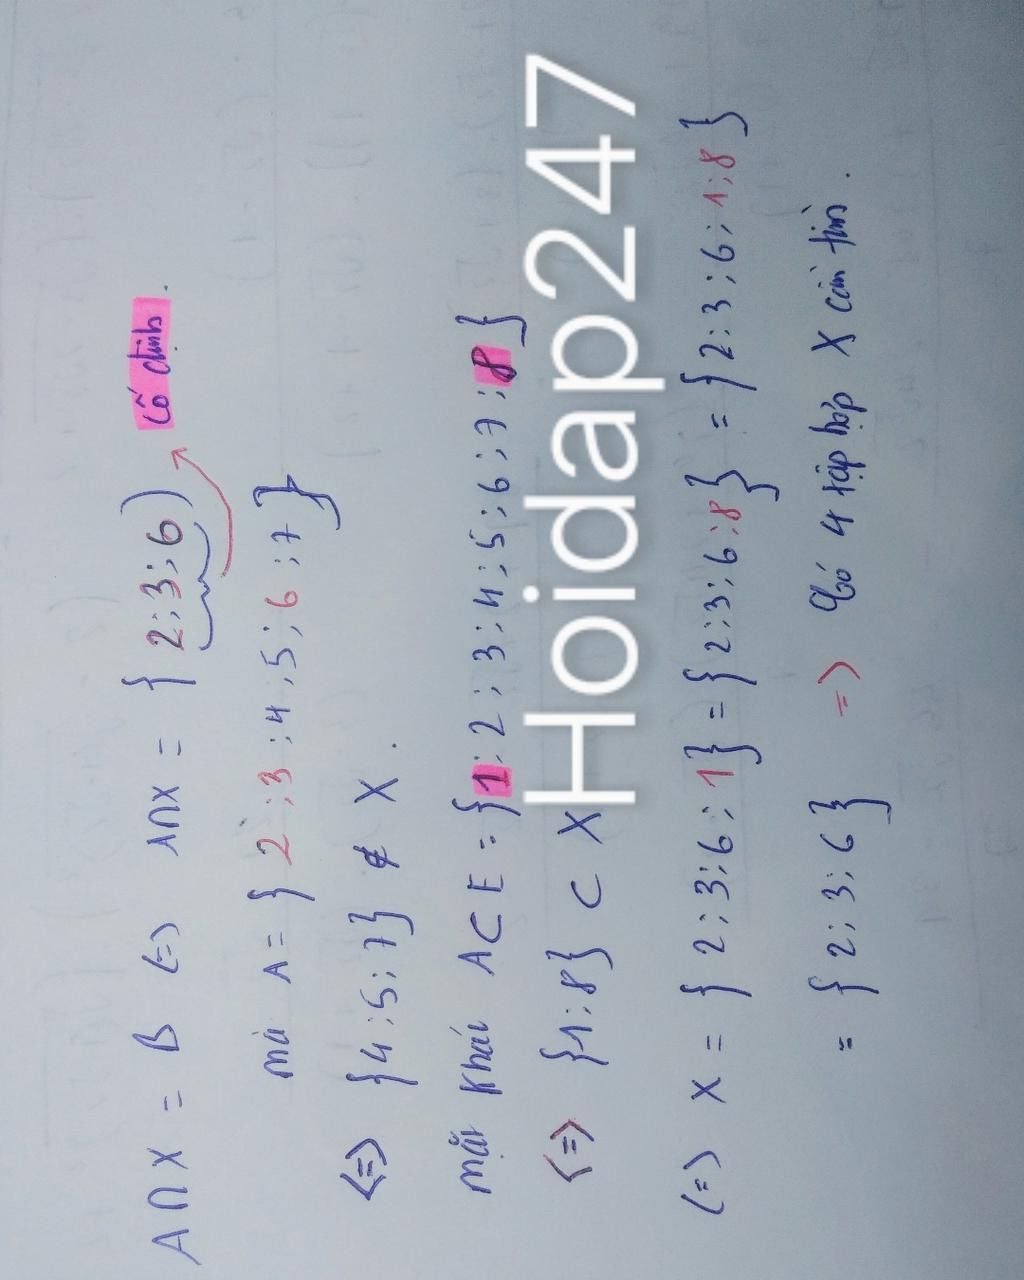 A∩X = B (=) A∩X = { 2;3;6) cố định.
mà A = { 2;3;4;5;6;7 }
<=> {4;5;7} ∉ X.
mặt khác A⊂E = {1;2;3;4;5;6;7;8}
<=> {1;8} ⊂ X
(=) X = { 2;3;6;1} = {2;3;6;8} = {2;3;6;1;8}
= { 2;3;6} =) Có 4 tập hợp X cần tìm.
Hoidap247